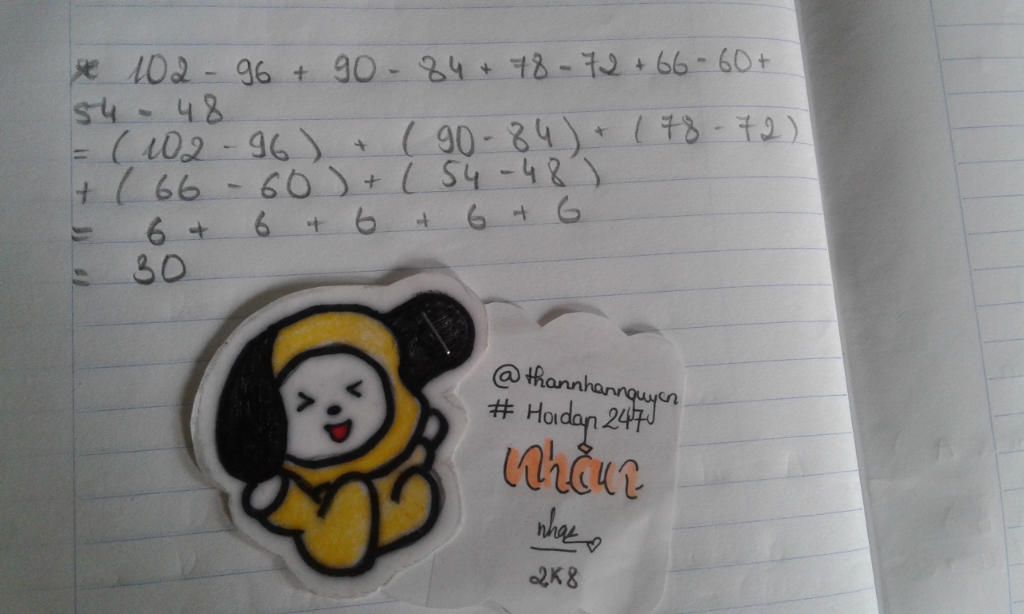 * 102 - 96 + 90 - 84 + 78 - 72 + 66 - 60 +
54 - 48
= (102 - 96) + (90 - 84) + (78 - 72)
+ (66 - 60) + (54 - 48)
= 6 + 6 + 6 + 6 + 6
= 30
@thannhannguyen
# Hoidap247
nhạc
2K8